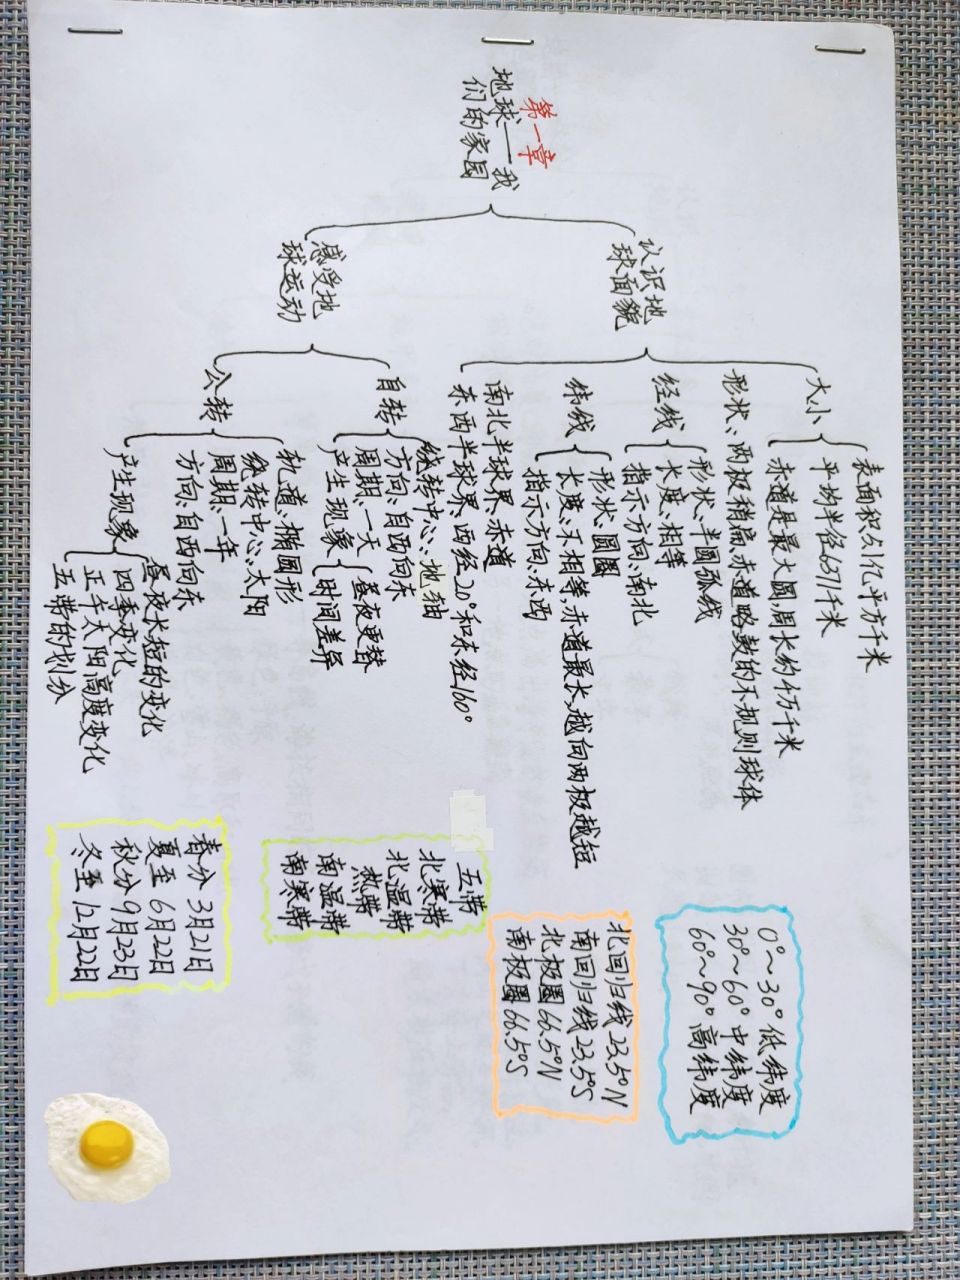 第一章
地球——我
们的家园
认识地
球面貌
大小
表面积5.1亿平方千米
平均半径6371千米
赤道是最大圆,周长约4万千米
形状、两极稍扁、赤道略鼓的不规则球体
经线
形状、半圆弧线
长度、相等
指示方向、南北
纬线
形状、圆圈
长度、不相等,赤道最长,越向两极越短
指示方向、东西
南北半球界、赤道
东西半球界、西经20°和东经160°
感受地
球运动
自转
绕转中心、地轴
方向、自西向东
周期、一天
产生现象
昼夜更替
时间差异
公转
轨道、椭圆形
绕转中心、太阳
周期、一年
方向、自西向东
产生现象
昼夜长短的变化
四季变化
正午太阳高度变化
五带的划分
0°~30°低纬度
30°~60°中纬度
60°~90°高纬度
北回归线23.5°N
南回归线23.5°S
北极圈66.5°N
南极圈66.5°S
五带
北寒带
北温带
热带
南温带
南寒带
春分 3月21日
夏至 6月22日
秋分9月23日
冬至 12月22日